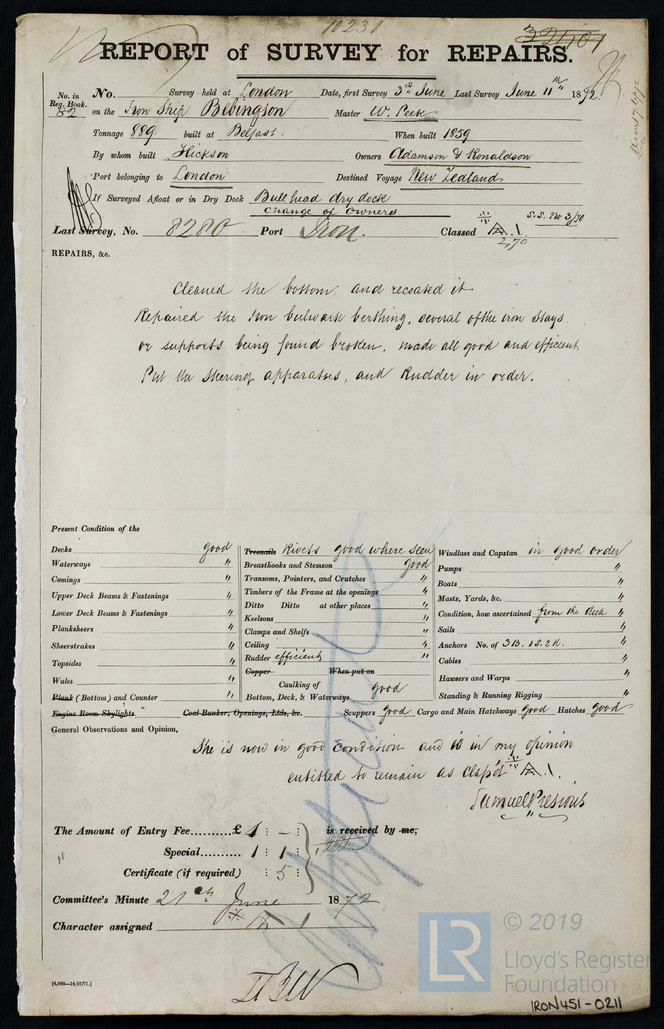 10231
32101
REPORT of SURVEY for REPAIRS.
No. in Reg. Book. No. Survey held at London Date, first Survey 3rd June Last Survey June 11th 1872.
82 on the Iron Ship Bebingson Master W. Peek
Tonnage 889 built at Belfast. When built 1859
By whom built Hickson Owners Adamson & Ronaldson
Port belonging to London Destined Voyage New Zealand
If Surveyed Afloat or in Dry Dock Bull head dry dock
Change of Owners
S.S. No 3/70
Last Survey, No. 8280 Port Iron. Classed A.1.
2,70
REPAIRS, &c.
Cleaned the bottom and recoated it
Repaired the Iron bulwark berthing, several of the iron stays
or supports being found broken. made all good and efficient
Put the Steering apparatus, and Rudder in order.
Present Condition of the
Decks good
Waterways "
Comings "
Upper Deck Beams & Fastenings "
Lower Deck Beams & Fastenings "
Planksheers "
Sheerstrakes "
Topsides "
Wales "
Plank (Bottom) and Counter "
Engine Room Skylights "
Treenails Rivets good where seen
Breasthooks and Stemson good
Transoms, Pointers, and Crutches "
Timbers of the Frame at the openings "
Ditto Ditto at other places "
Keelsons "
Clamps and Shelfs "
Ceiling "
Rudder efficient
Copper When put on
Caulking of
Bottom, Deck, & Waterways good
Coal Bunker, Openings, Lids, &c.
Windlass and Capstan in good order
Pumps "
Boats "
Masts, Yards, &c. "
Condition, how ascertained from the deck "
Sails "
Anchors No. of 3B. 1S. 2K. "
Cables "
Hawsers and Warps "
Standing & Running Rigging "
Scuppers good Cargo and Main Hatchways good Hatches good
General Observations and Opinion,
She is now in good condition and is in my opinion
entitled to remain as class'd A.1.
Samuel Presious
The Amount of Entry Fee........... £ 1 : - : is received by me,
Special........... 1 : 1 :
Certificate (if required) : 5 :
Committee's Minute 21st June 1872
Character assigned A 1
[4,000—14/10/71.]
LR
© 2019
Lloyd's Register
Foundation
IRON451-0211